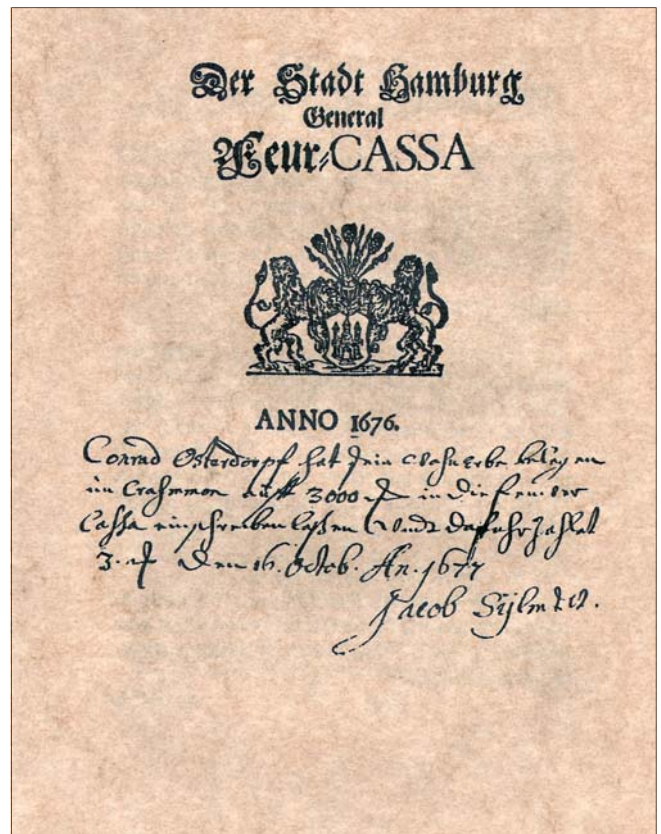 Der Stadt Hamburg
General
Feur=CASSA
ANNO 1676.
Conrad Osterdorpf hat sein Wohnerbe belegen
im Crahmmon auff 3000 in die Feuwer
Cassa einschreiben laßen Undt dafuhr Zahlet
3. Den 16. Octob. An. 1677
Jacob